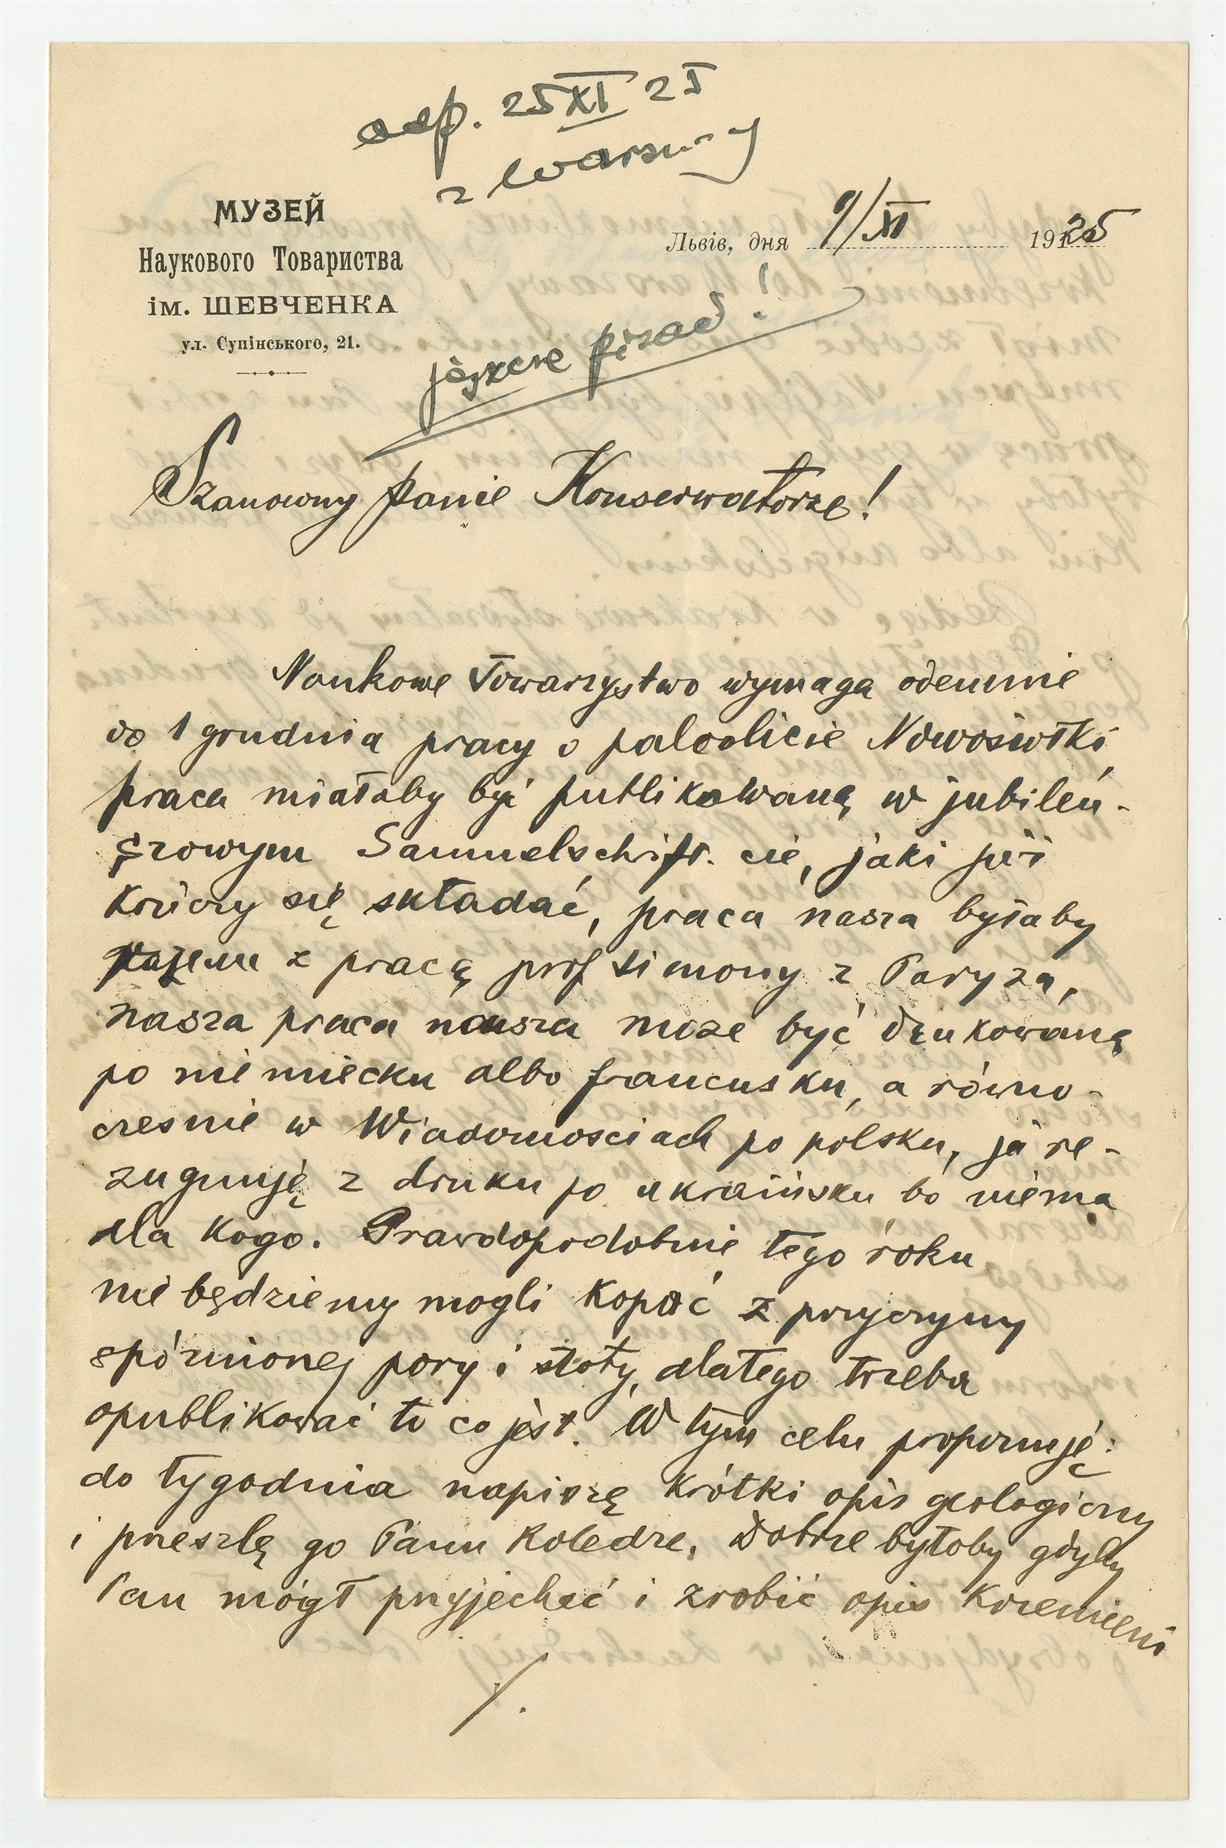 odp. 25 XI 25
z Warszawy
МУЗЕЙ
Наукового Товариства
ім. ШЕВЧЕНКА
ул. Супінського, 21.
Львів, дня 9/XI 1925
jeszcze pisać!
Szanowny Panie Konserwatorze!
Naukowe Towarzystwo wymaga odemnie
do 1 grudnia pracy o paleolicie Nowosiółki
praca miałaby być publikowaną w jubileu-
szowym Sammelschrift. cie, jaki już
kończy się składać, praca nasza byłaby
razem z pracą prof Simony z Paryża,
nasza praca może być drukowaną
po niemiecku albo francusku, a równo-
cześnie w Wiadomościach po polsku, ja re-
zugnuję z druku po ukraińsku bo niema
dla kogo. Prawdopodobnie tego roku
nie będziemy mogli kopać z przyczyny
spóźnionej pory i słoty, dlatego trzeba
opublikować to co jest. W tym celu proponuję:
do tygodnia napiszę krótki opis geologiczny
i prześlę go Panu Koledze. Dobrze byłoby gdyby
Pan mógł przyjechać i zrobić opis krzemieni
./.